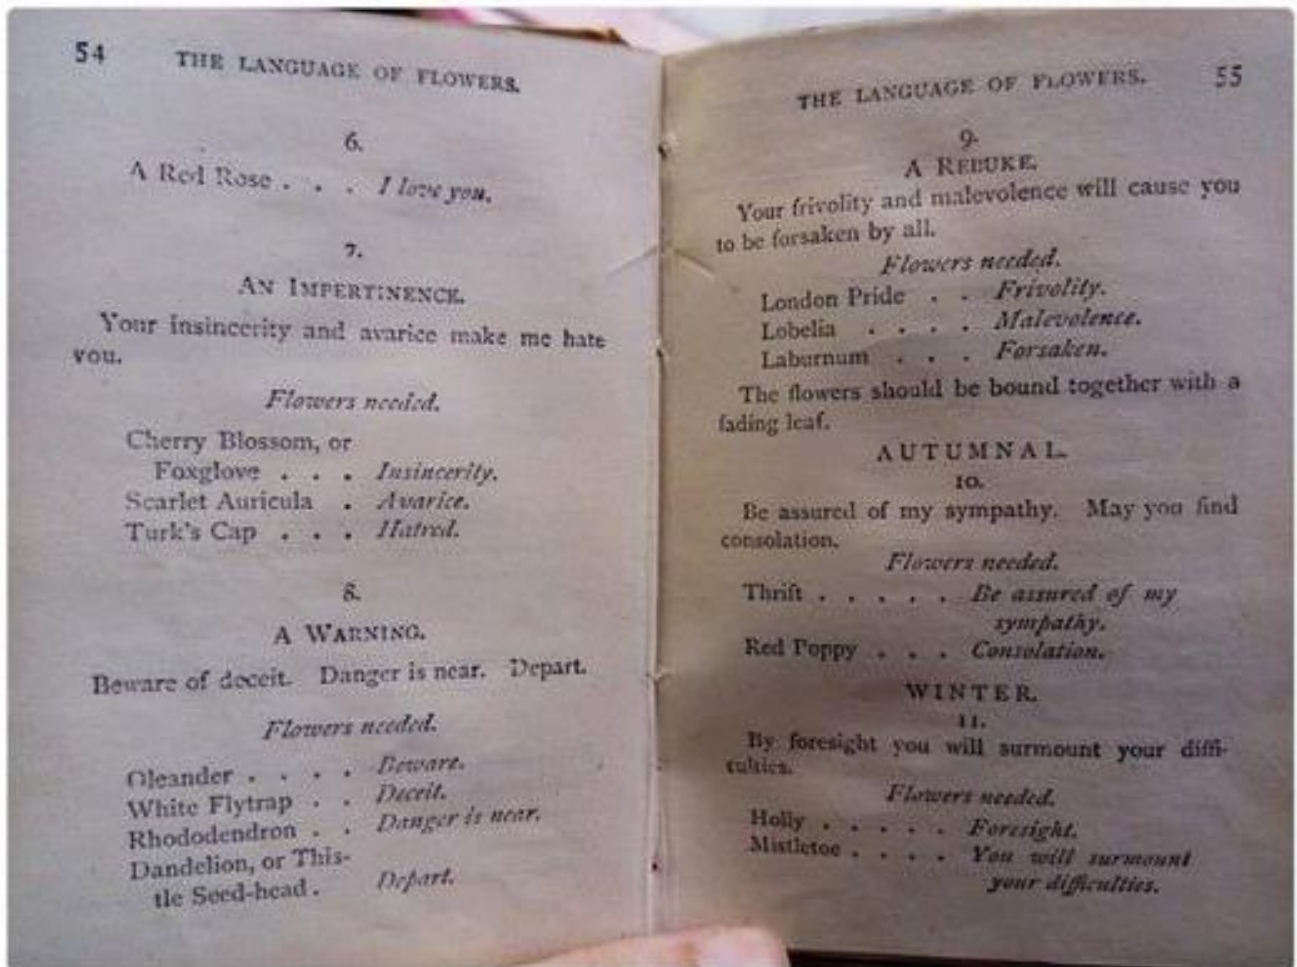 54 THE LANGUAGE OF FLOWERS.
6.
A Red Rose . . . I love you.
7.
AN IMPERTINENCE.
Your insincerity and avarice make me hate
you.
Flowers needed.
Cherry Blossom, or
Foxglove . . . Insincerity.
Scarlet Auricula . Avarice.
Turk's Cap . . . Hatred.
8.
A WARNING.
Beware of deceit. Danger is near. Depart.
Flowers needed.
Oleander . . . . Beware.
White Flytrap . . Deceit.
Rhododendron . . Danger is near.
Dandelion, or This-
tle Seed-head . Depart.
THE LANGUAGE OF FLOWERS. 55
9.
A REBUKE.
Your frivolity and malevolence will cause you
to be forsaken by all.
Flowers needed.
London Pride . . Frivolity.
Lobelia . . . . Malevolence.
Laburnum . . . Forsaken.
The flowers should be bound together with a
fading leaf.
AUTUMNAL.
10.
Be assured of my sympathy. May you find
consolation.
Flowers needed.
Thrift . . . . . Be assured of my
sympathy.
Red Poppy . . . Consolation.
WINTER.
11.
By foresight you will surmount your diffi-
culties.
Flowers needed.
Holly . . . . . Foresight.
Mistletoe . . . . You will surmount
your difficulties.